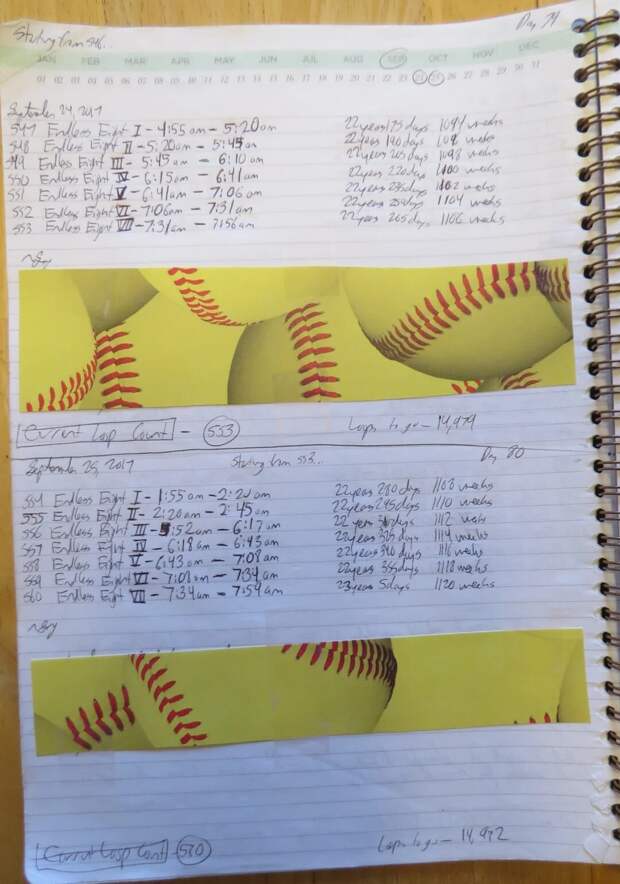 Starting from 546...
Day 79
JAN FEB MAR APR MAY JUN JUL AUG SEP OCT NOV DEC
01 02 03 04 05 06 07 08 09 10 11 12 13 14 15 16 17 18 19 20 21 22 23 24 25 26 27 28 29 30 31
September 24, 2017
547 Endless Eight I - 4:55am - 5:20am 22 years 175 days 1094 weeks
548 Endless Eight II - 5:20am - 5:45am 22 years 190 days weeks
549 Endless Eight III - 5:45am - 6:10am 22 years 205 days 1098 weeks
550 Endless Eight IV - 6:15am - 6:41am 22 years 220 days 1100 weeks
551 Endless Eight V - 6:41am - 7:06am 22 years 235 days 1102 weeks
552 Endless Eight VI - 7:06am - 7:31am 22 years 250 days 1104 weeks
553 Endless Eight VII - 7:31am - 7:56am 22 years 265 days 1106 weeks
Current Loop Count - 553
Loops to go - 14,979
September 25, 2017 Starting from 553... Day 80
554 Endless Eight I - 1:55am - 2:20am 22 years 280 days 1108 weeks
555 Endless Eight II - 2:20am - 2:45am 22 years 295 days 1110 weeks
556 Endless Eight III - 5:52am - 6:17am 22 years 310 days 1112 weeks
557 Endless Eight IV - 6:18am - 6:43am 22 years 325 days 1114 weeks
558 Endless Eight V - 6:43am - 7:08am 22 years 340 days 1116 weeks
559 Endless Eight VI - 7:08am - 7:34am 22 years 355 days 1118 weeks
560 Endless Eight VII - 7:34am - 7:59am 23 years 5 days 1120 weeks
Current Loop Count - 560
Loops to go - 14,972